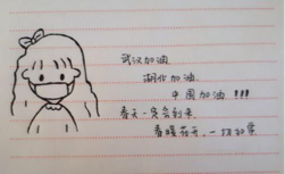 武汉加油
湖北加油
中国加油 !!!
春天一定会到来
春暖花开,一切